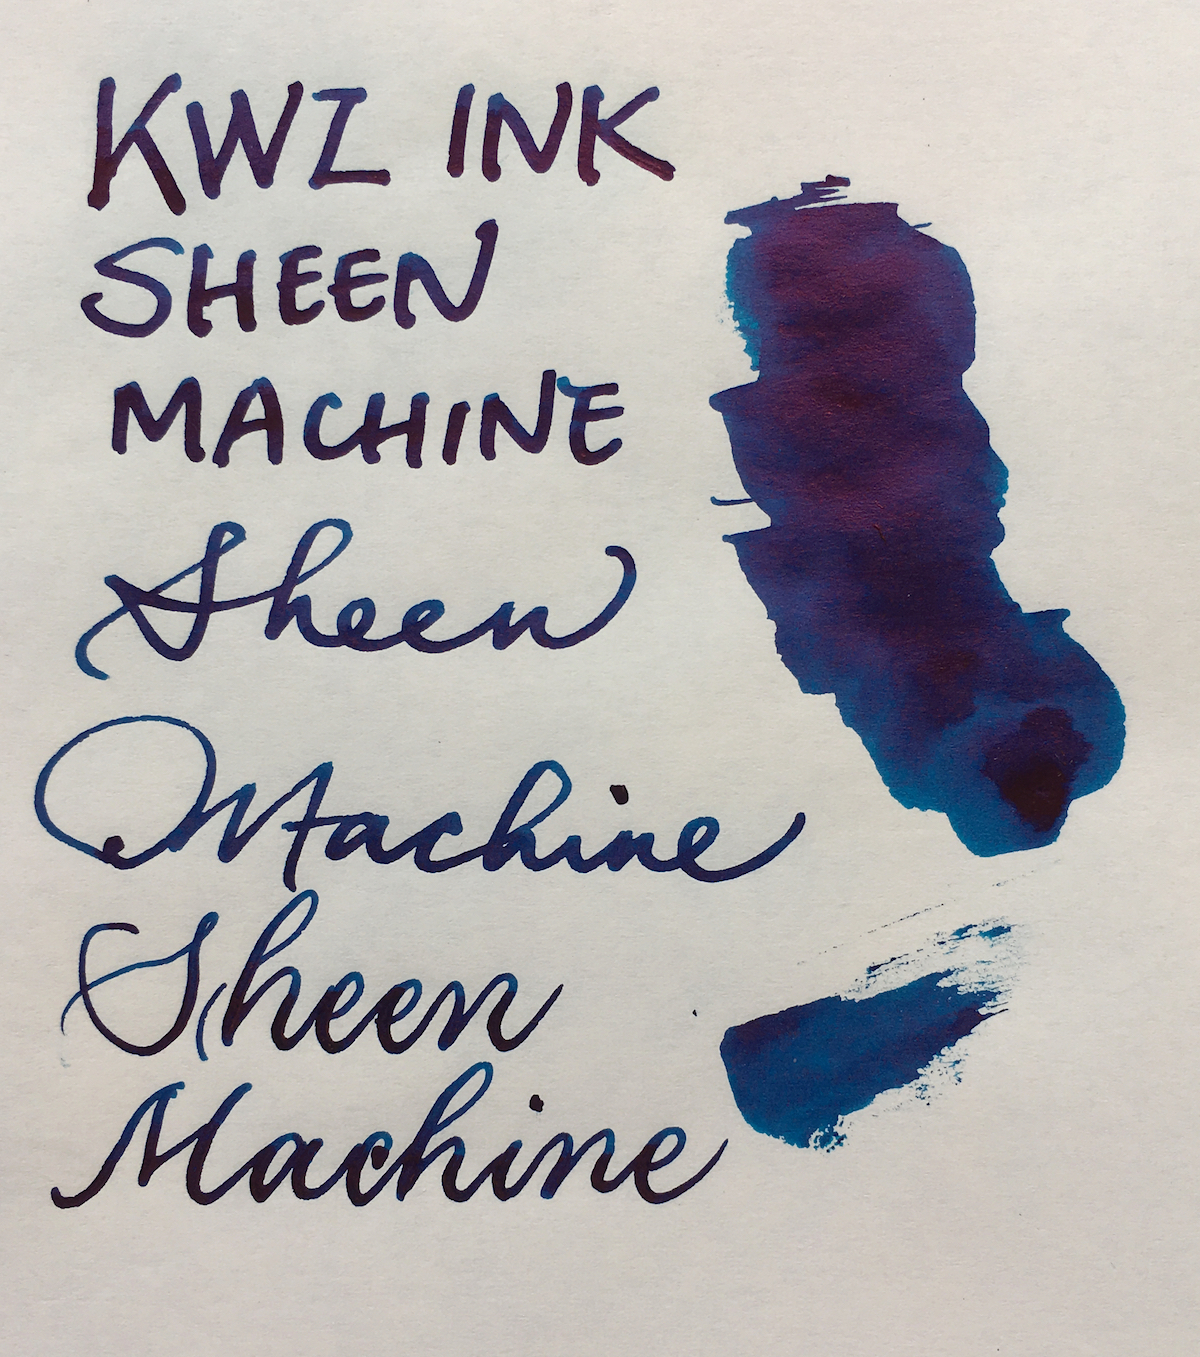 KWZ INK
SHEEN
MACHINE
Sheen
Machine
Sheen
Machine